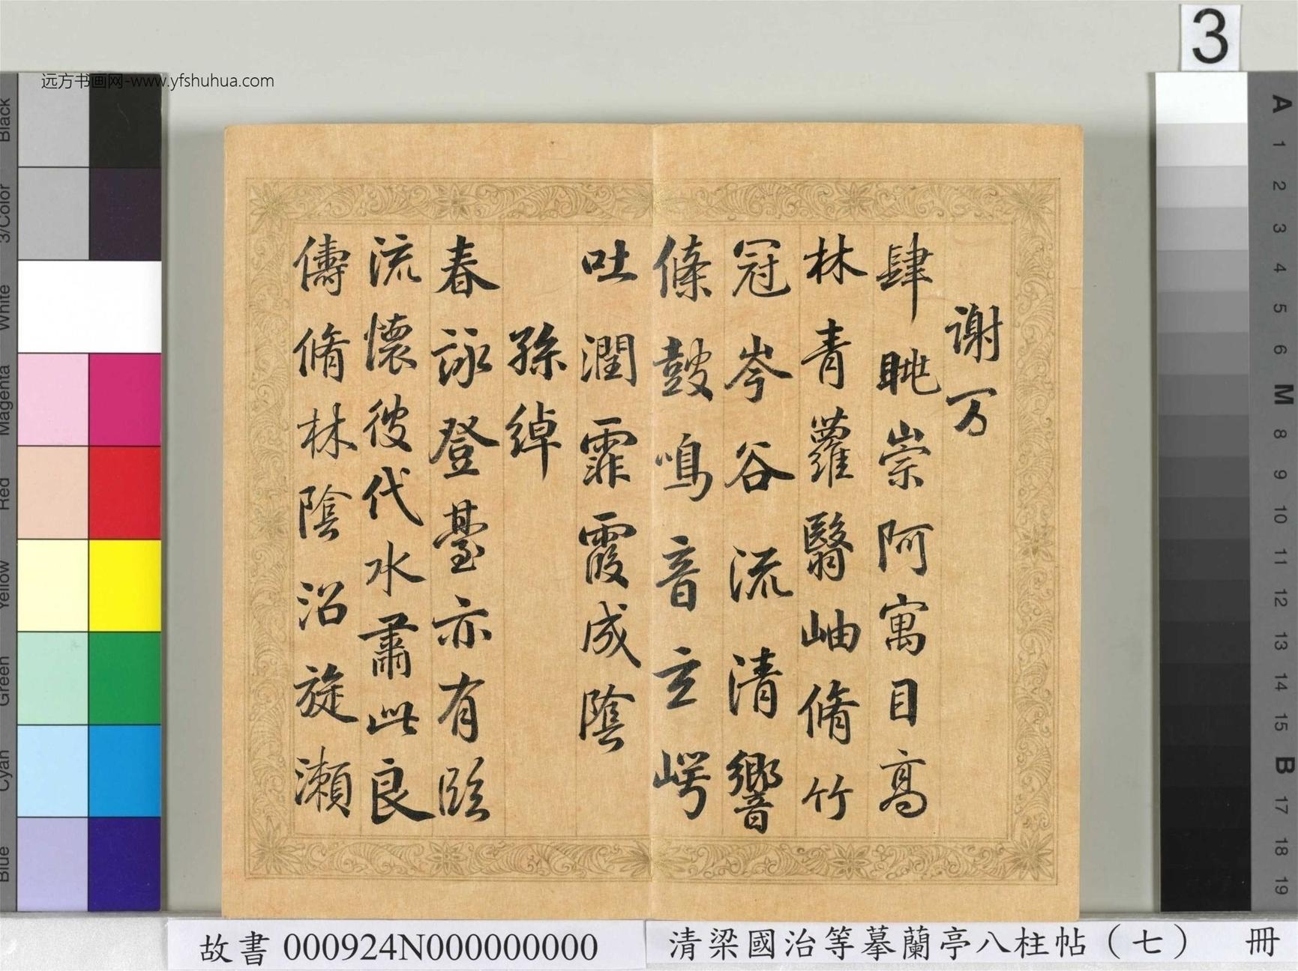 3
远方书画网-www.yfshuhua.com
謝万
肆眺崇阿寓目高
林青蘿翳岫脩竹
冠岑谷流清響
條鼓鳴音玄崿
吐潤霏霞成陰
孫綽
春詠登臺亦有臨
流懷彼伐水肅此良
儔脩林陰沼旋瀨
Black
3/Color
White
Magenta
Red
Yellow
Green
Cyan
Blue
A
1
2
3
4
5
6
M
8
9
10
11
12
13
14
15
B
17
18
19
故書 000924N000000000
清梁國治等摹蘭亭八柱帖（七） 冊